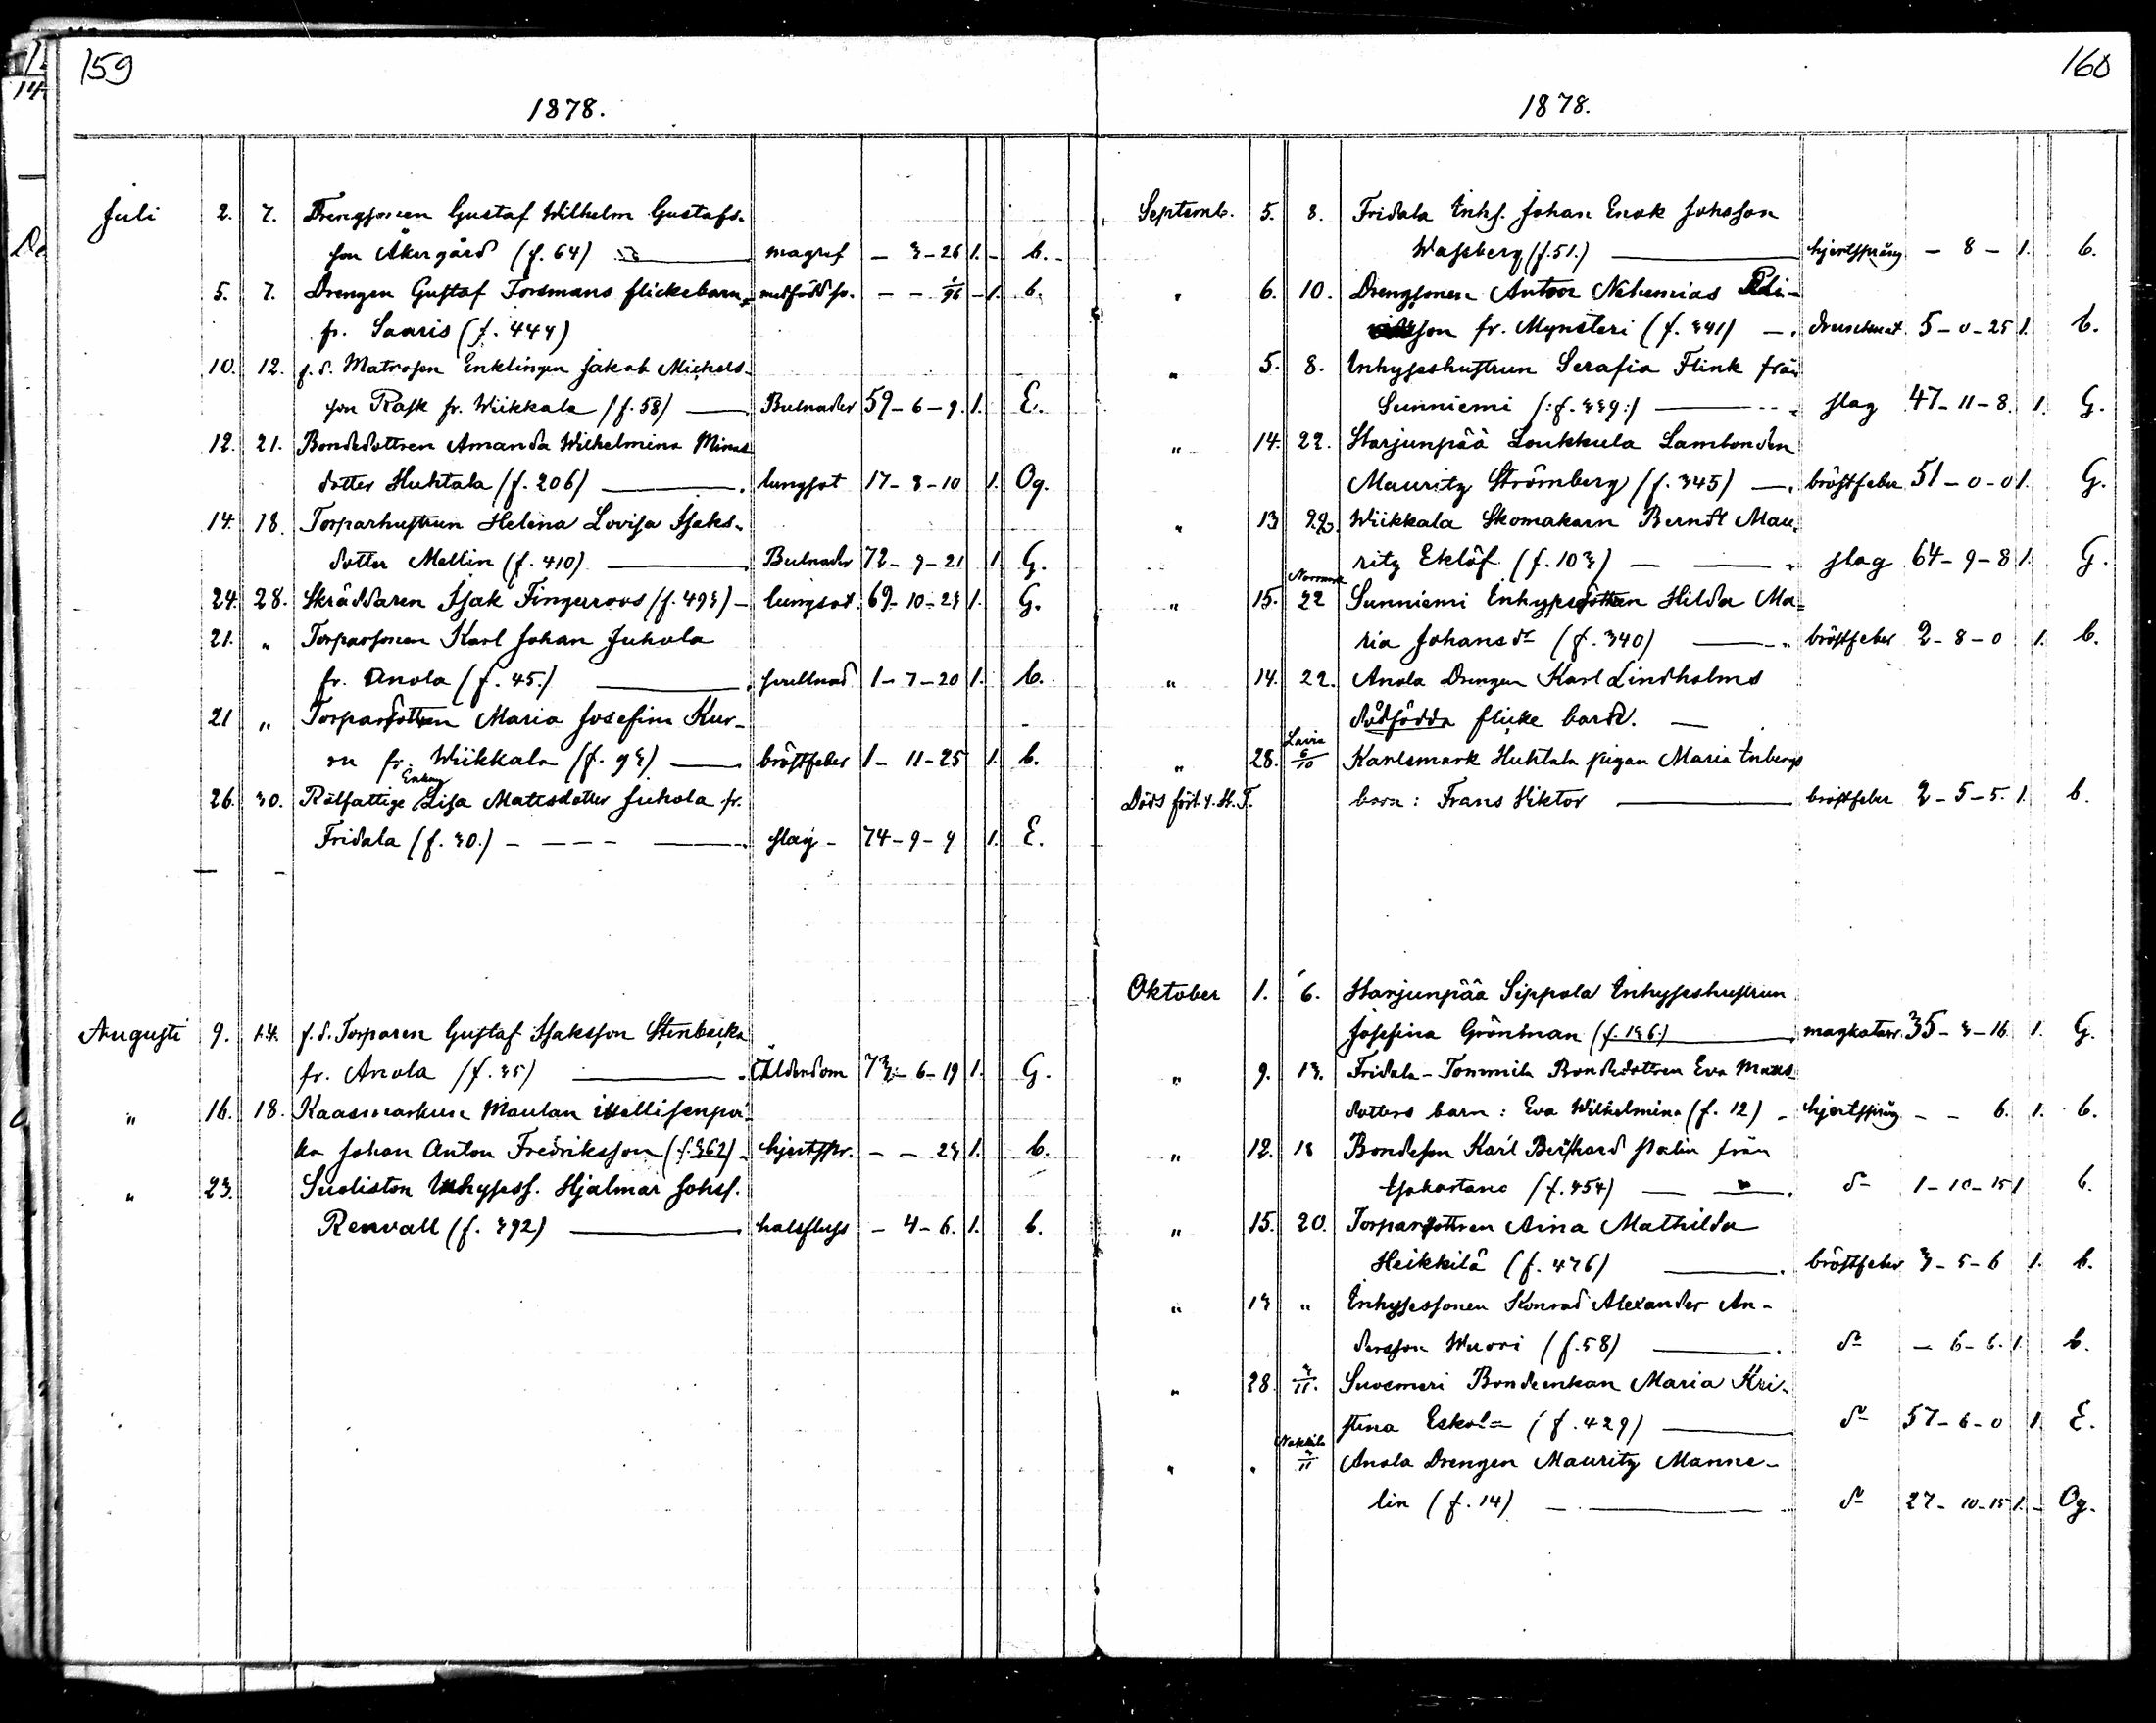 159
1878.
Juli 2. 7. Drengsonen Gustaf Wilhelm Gustafs-
son Åkergård (f. 64) magref - 3-26 1. - b.
5. 7. Drengen Gustaf Forsmans flickebarn medfödd - - 1. b.
fr. Saaris (f. 444)
10. 12. f.d. Matrosen Enklingen Jakob Michels-
son Rask fr. Wiikkala (f. 58) Bulnader 59-6-9. 1. E.
12. 21. Bondedottren Amanda Wilhelmina
dotter Huhtala (f. 206) lungsot 17-8-10 1. Og.
14. 18. Torparhustrun Helena Lovisa Isaks-
dotter Mellin (f. 410) Bulnader 72-9-21 1 G.
24. 28. Skräddaren Isak Fingerroos (f. 493) lungsot 69-10-23 1. G.
21. " Torparsonen Karl Johan Juhola
fr. Anola (f. 45.) svullnad 1-7-20 1. b.
21 " Torpardottren Maria Josefina Kur-
fr. Wiikkala (f. 93) bröstfeber 1-11-25 1. b.
26. 30. Rotfattige Enkan Lisa Matsdotter Juhola fr.
Fridala (f. 30.) slag 74-9-9 1. E.
Augusti 9. 14. f.d. Torparen Gustaf Isaksson Stenbacka
fr. Anola (f. 35) Ålderdom 73-6-19 1. G.
" 16. 18. Kaasmarkun Maulan itsellisenpoi-
ka Johan Anton Fredriksson (f. 362) hjertspr. - - 23 1. b.
" 23. Suoliston Inhysess. Hjalmar Johss.
Renvall (f. 392) halsfluss - 4-6. 1. b.
160
1878.
Septemb. 5. 8. Fridala Inhs. Johan Enok Johsson
Wassberg (f. 51.) hjertsprång - 8 - 1. b.
" 6. 10. Drengsonen Anton Nehemias
son fr. Mynsteri (f. 341) 5-0-25 1. b.
" 5. 8. Inhyseshustrun Serafia Flink från
Sunniemi (:f. 339:) slag 47-11-8. 1. G.
" 14. 22. Harjunpää Loukkula Lambonden
Mauritz Strömberg (f. 345) bröstfeber 51-0-0 1. G.
" 13 22. Wiikkala Skomakarn Berndt Mau-
ritz Eklöf (f. 103) slag 64-9-8 1. G.
Norrmark
" 15. 22 Sunniemi Inhysedottren Hilda Ma-
ria Johansdr (f. 340) bröstfeber 2-8-0 1. b.
" 14. 22. Anola Drengen Karl Lindholms
dödfödda flicke barn.
Lavia
" 28. 6/10 Karlsmark Huhtala pigan Maria Enbergs
Döds fört. t. H.T. barn: Frans Viktor bröstfeber 2-5-5. 1. b.
Oktober 1. 6. Harjunpää Sippola Inhyseshustrun
Josefina Grönman (f. 136) magkatarr 35-3-16 1. G.
" 9. 13. Fridala-Tommila Bondedottren Eva Mats-
dotters barn: Eva Wilhelmina (f. 12) hjertsprång - - 6. 1. b.
" 12. 13 Bondeson Karl Bernhard Stalin från
Isokartano (f. 454) do 1-10-15 1 b.
" 15. 20. Torpardottren Aina Mathilda
Heikkilä (f. 476) bröstfeber 3-5-6 1. b.
" 13 " Inhysessonen Konrad Alexander An-
dersson Wuori (f. 58) do - 6-6. 1. b.
" 28. 3/11. Suosmeri Bondeenkan Maria Kri-
stina Eskola (f. 429) do 57-6-0 1. E.
Nakkila
" " 3/11 Anola Drengen Mauritz Manne-
lin (f. 14) do 27-10-15 1. - Og.